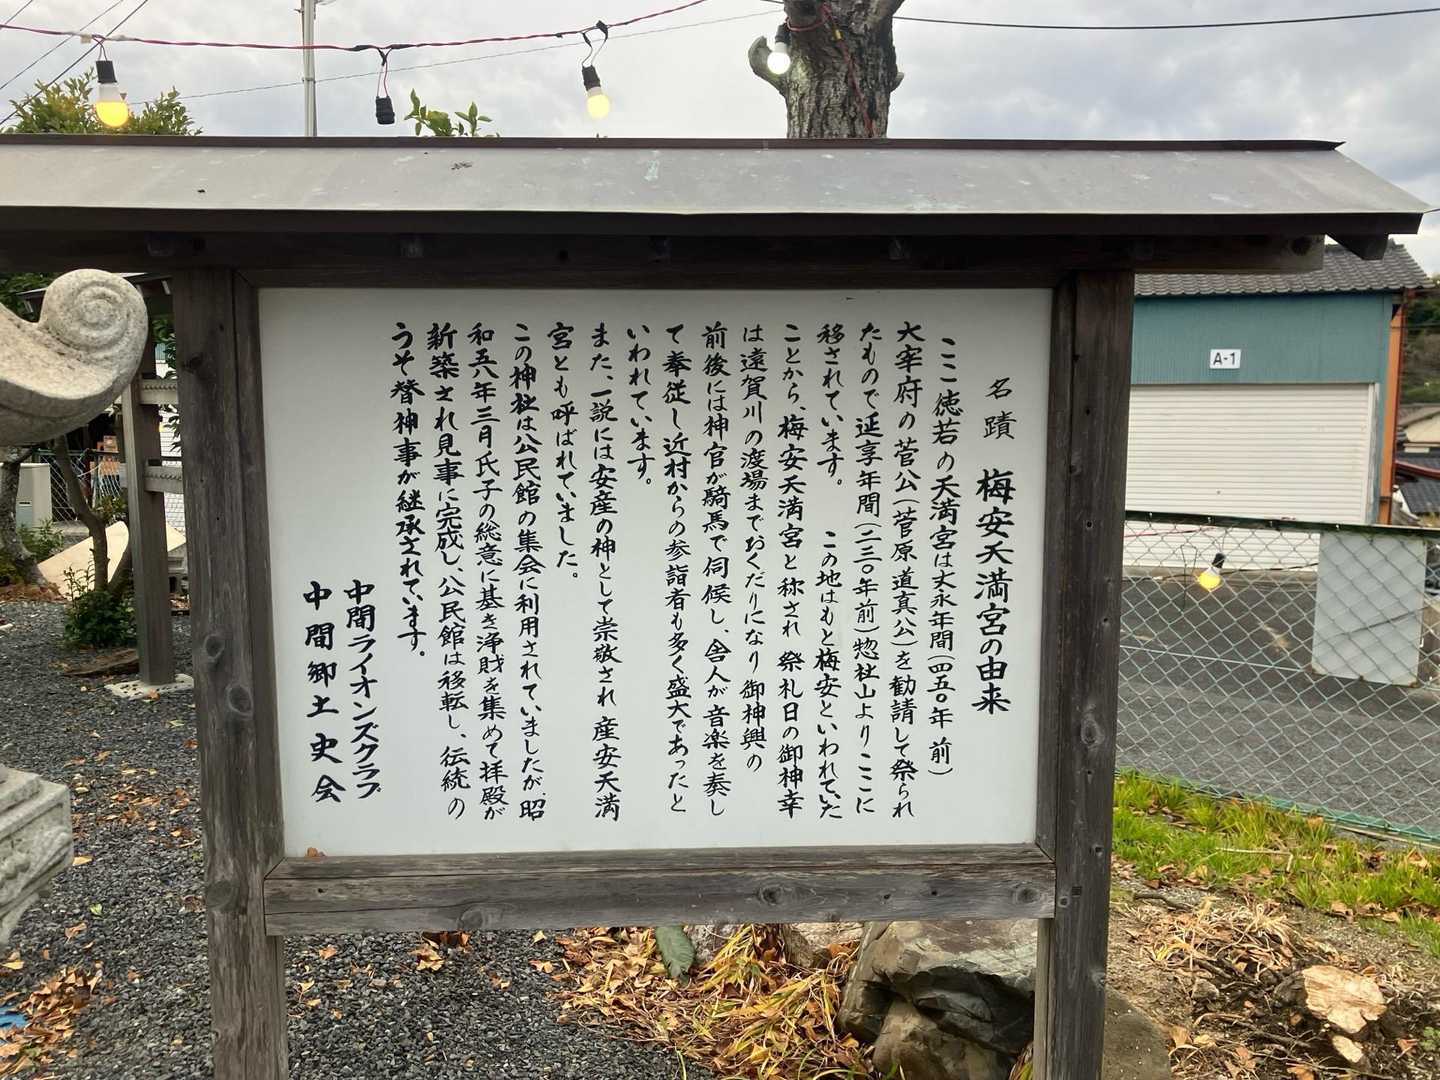 名蹟　梅安天満宮の由来
ここ徳若の天満宮は文永年間(四五〇年前)
大宰府の菅公(菅原道真公)を勧請して祭られ
たもので延享年間(二三〇年前)惣社山よりここに
移されています。　この地はもと梅安といわれていた
ことから、梅安天満宮と称され祭礼日の御神幸
は遠賀川の渡場までおくだりになり御神輿の
前後には神官が騎馬で伺候し、舎人が音楽を奏し
て奉従し近村からの参詣者も多く盛大であったと
いわれています。
また、一説には安産の神として崇敬され産安天満
宮とも呼ばれていました。
この神社は公民館の集会に利用されていましたが、昭
和五八年三月氏子の総意に基き浄財を集めて拝殿が
新築され見事に完成し、公民館は移転し、伝統の
うそ替神事が継承されています。
中間ライオンズクラブ
中間郷土史会
A-1